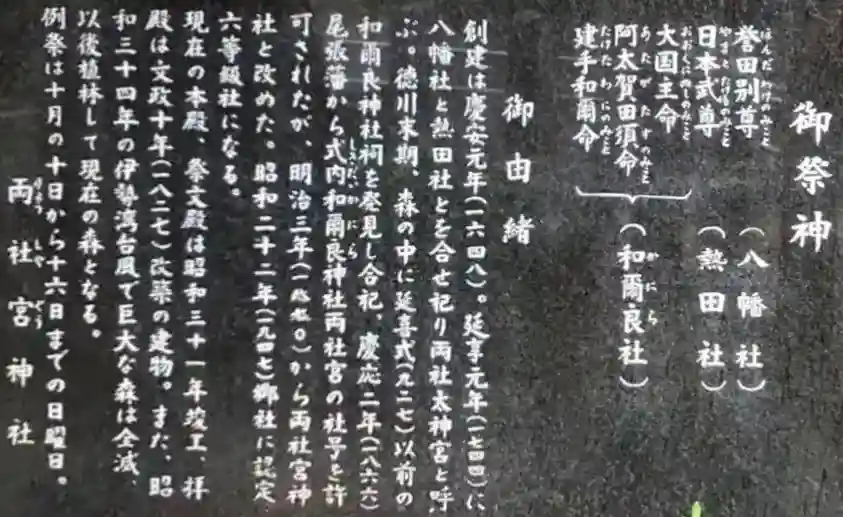 御祭神
誉田別尊（八幡社）
ほんだわけのみこと
日本武尊（熱田社）
やまとたけるのみこと
大国主命
おおくにぬしのみこと
阿太賀田須命（和爾良社）
あたかたすのみこと
かにら
建手和爾命
たけたわにのみこと
御由緒
創建は慶安元年（一六四八）。延享元年（一七四四）に
八幡社と熱田社とを合せ祀り両社太神宮と呼
ぶ。徳川末期、森の中に延喜式（九二七）以前の
和爾良神社祠を発見し合祀、慶応二年（一八六六）
尾張藩から式内和爾良神社両社宮の社号を許
可されたが、明治三年（一八七〇）から両社宮神
社と改めた。昭和二十二年（一九四七）郷社に認定
六等級社になる。
現在の本殿、祭文殿は昭和三十一年竣工、拝
殿は文政十年（一八二七）改築の建物。また、昭
和三十四年の伊勢湾台風で巨大な森は全滅、
以後植林して現在の森となる。
例祭は十月の十日から十六日までの日曜日。
両社宮神社